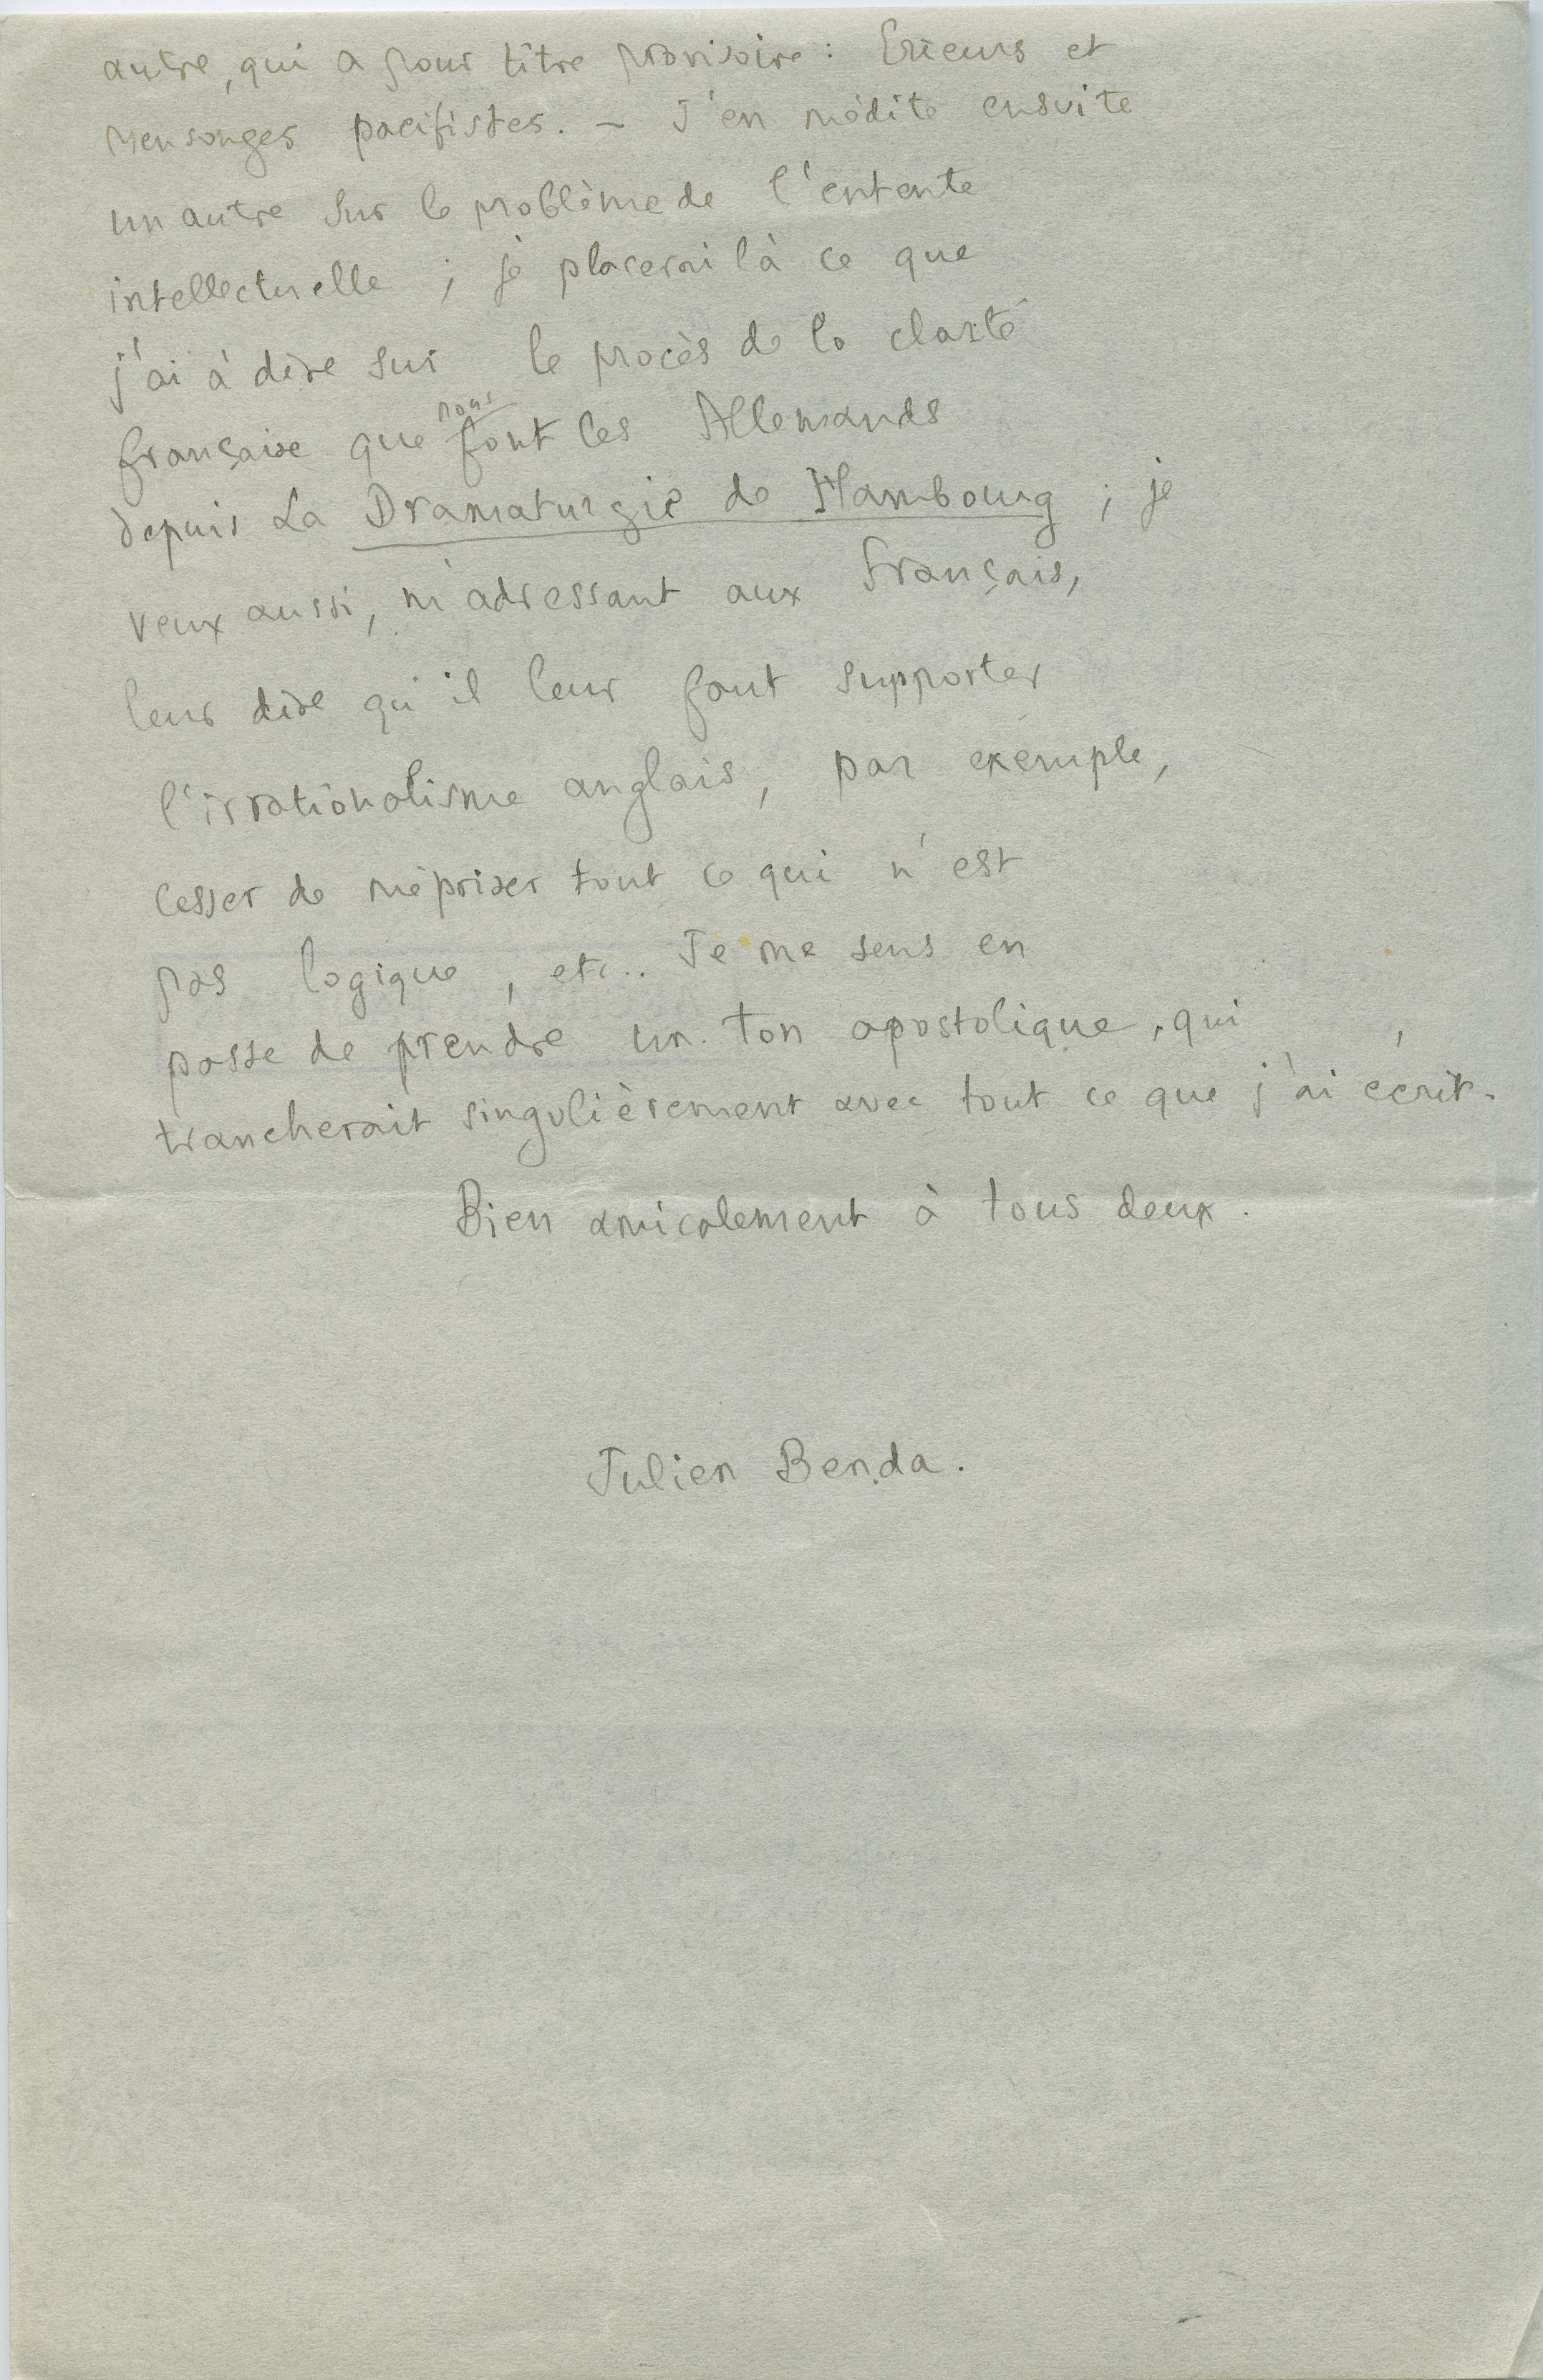 autre, qui a pour titre provisoire : Erreurs et
mensonges pacifistes. – J'en médite ensuite
un autre sur le problème de l'entente
intellectuelle ; je placerai là ce que
j'ai à dire sur le procès de la clarté
nous
française que font les Allemands
depuis La Dramaturgie de Hambourg ; je
veux aussi, m'adressant aux Français,
leur dire qu'il leur faut supporter
l'irrationalisme anglais, par exemple,
cesser de mépriser tout ce qui n'est
pas logique, etc.. Je me sens en
passe de prendre un ton apostolique, qui
trancherait singulièrement avec tout ce que j'ai écrit.
Bien amicalement à tous deux.
Julien Benda.